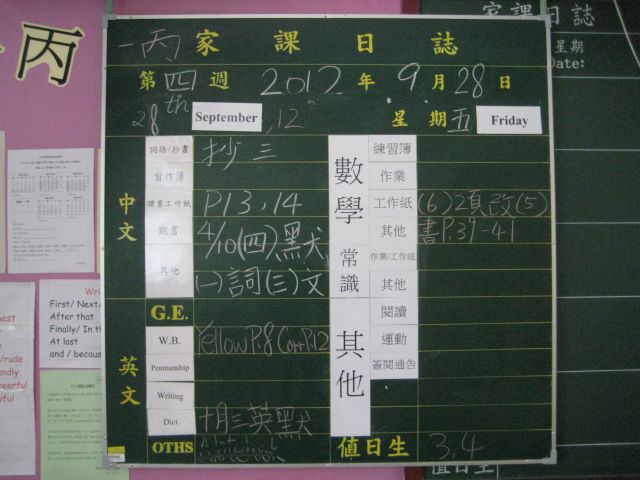 一丙 家課日誌
第四週 2012年 9月28日
28th September, 12 星期五 Friday
中文
詞語/抄書 抄三
習作簿
課業工作紙 P13,14
默書 4/10(四)默
其他 (一)詞(三)文
英文
G.E.
W.B. Yellow P.8 Corr P.12
Penmanship
Writing
Dict. 十月三英默
OTHS
數學
練習簿
作業
工作紙 (6)2頁改(5)
其他 書P.39-41
常識
作業/工作紙
其他
其他
閱讀
運動
簽閱通告
值日生 3,4
丙
家課日誌
星期
Date:
值日生
First/ Next/
After that
Finally/ In th
At last
and / becaus